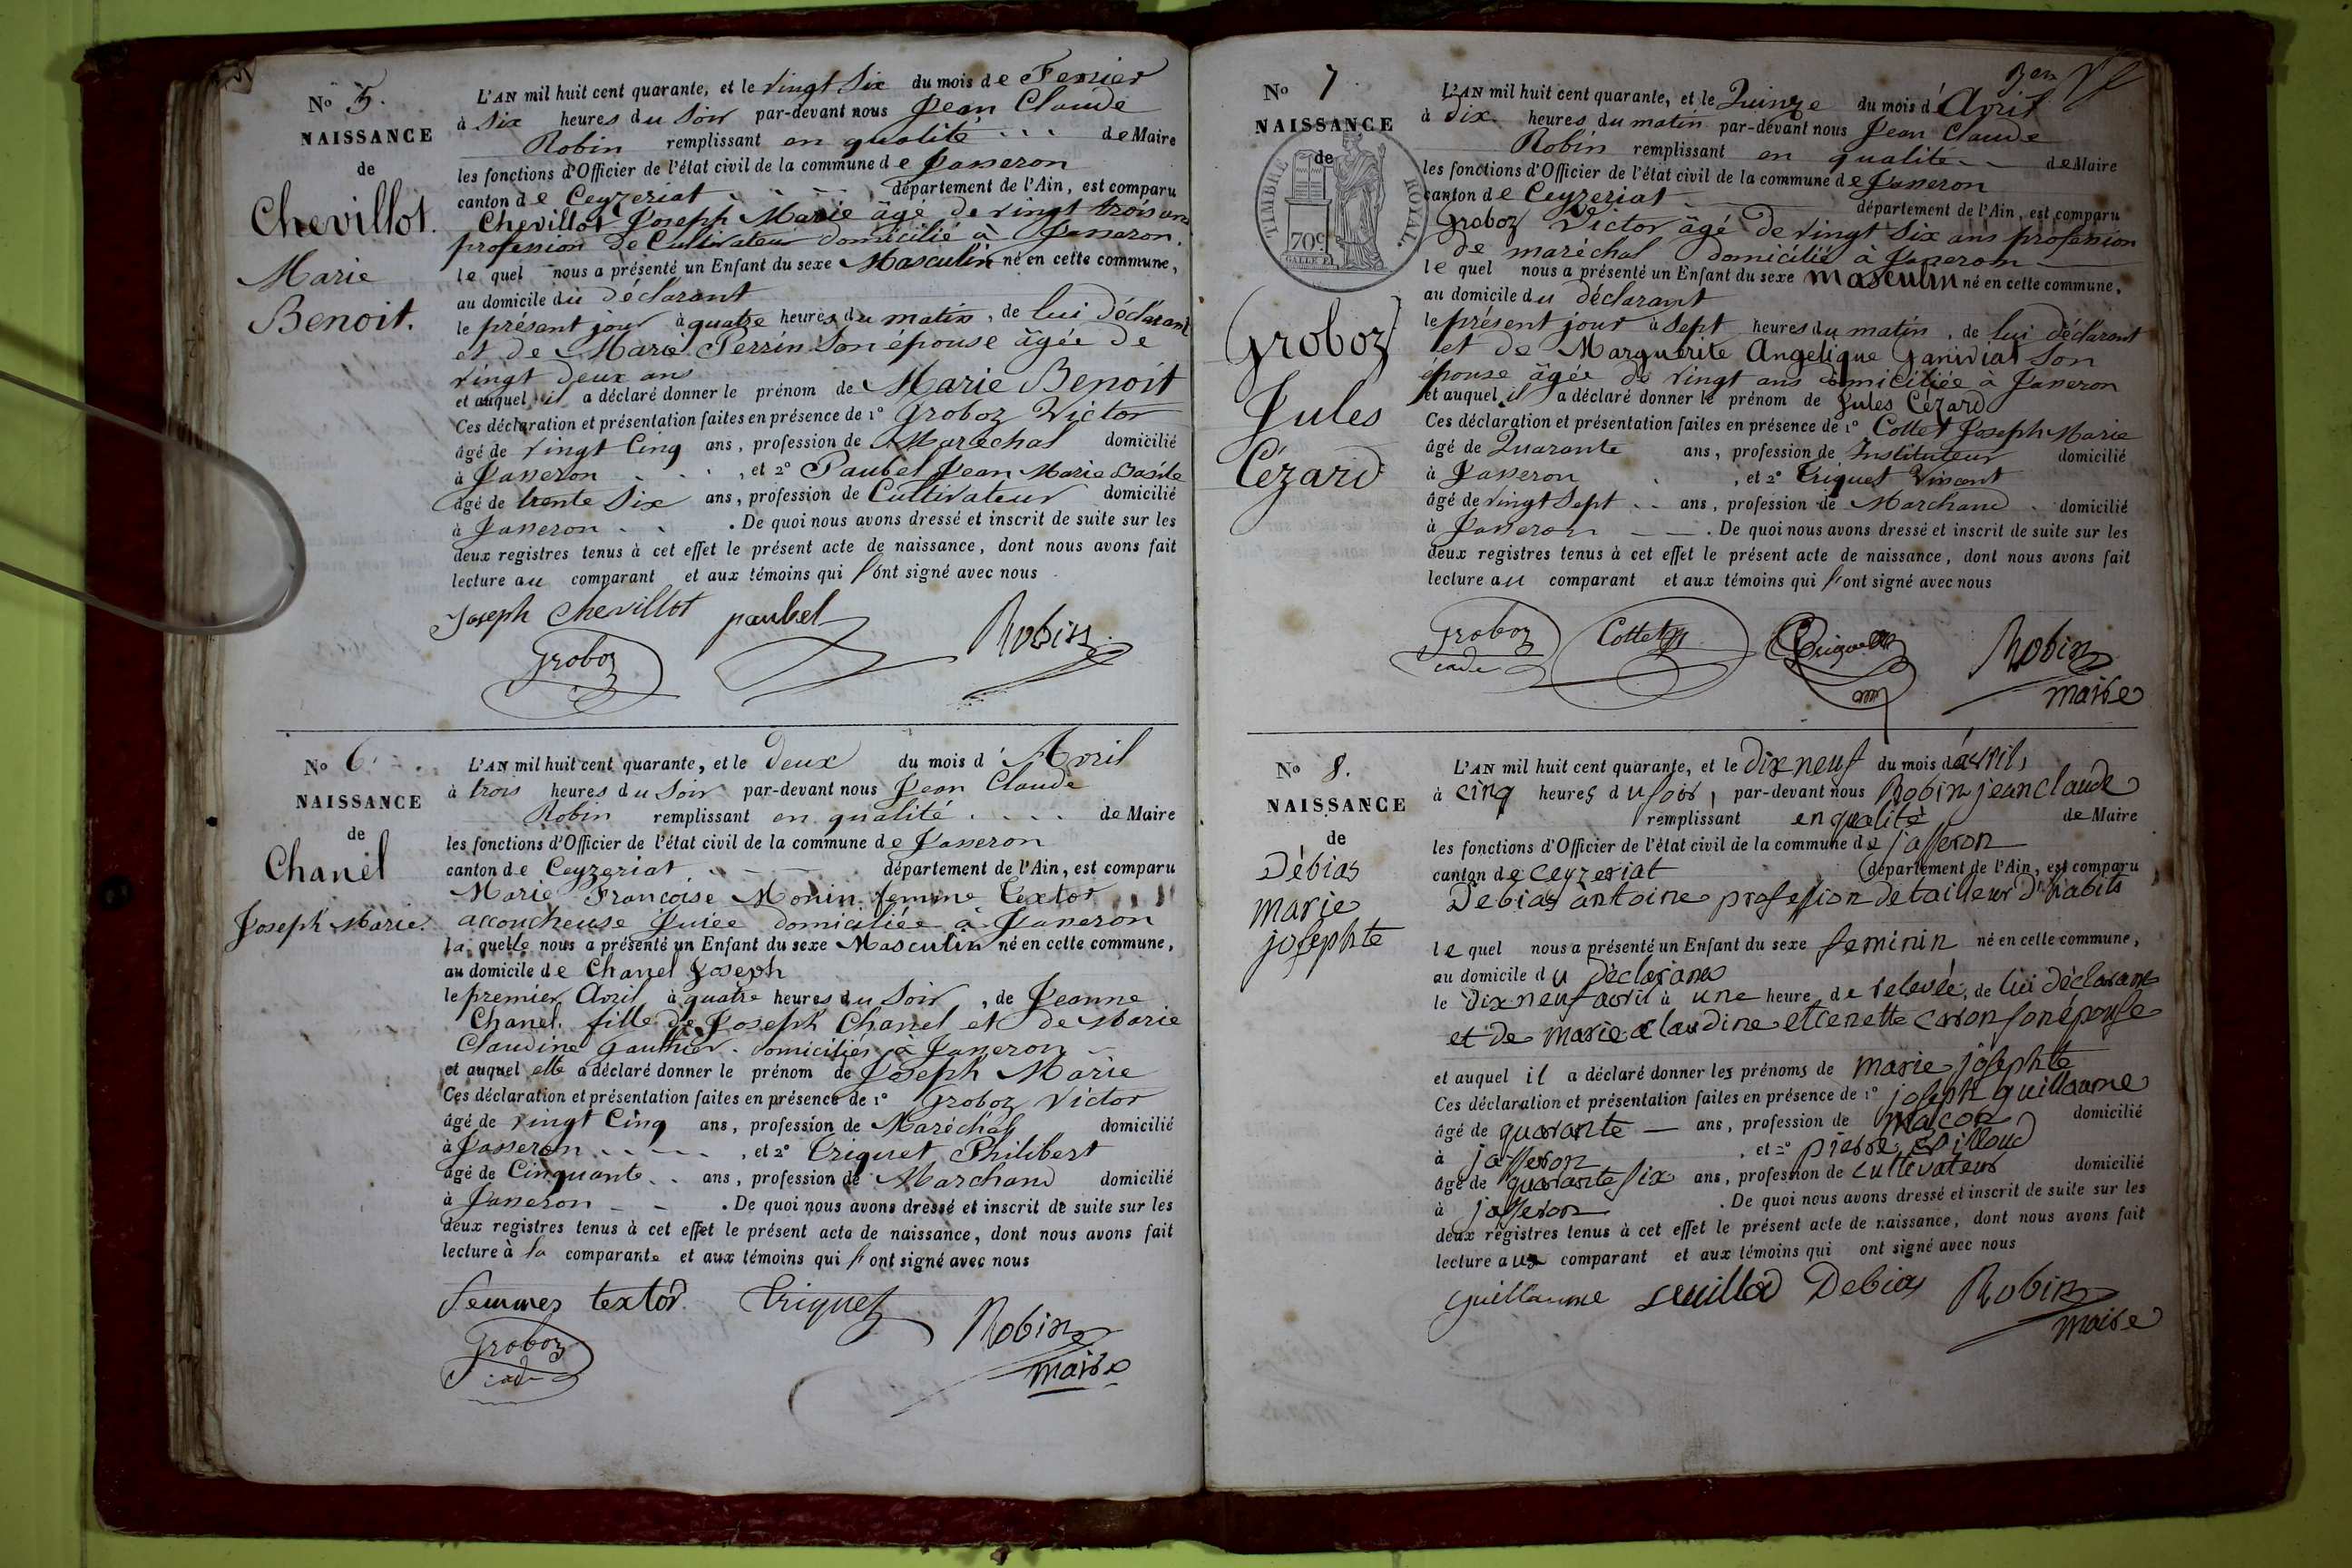 N° 5.
NAISSANCE
de
Chevillot.
Marie
Benoit.
L'AN mil huit cent quarante, et le vingt Six du mois de Fevrier
à Six heures du Soir par-devant nous Jean Claude
Robin remplissant en qualité de Maire
les fonctions d'Officier de l'état civil de la commune de Jasseron
canton de Ceyzeriat département de l'Ain, est comparu
Chevillot Joseph Marie âgé de vingt trois ans
profession de Cultivateur domicilié à Jasseron.
le quel nous a présenté un Enfant du sexe Masculin né en cette commune,
au domicile du déclarant
le présent jour à quatre heures du matin, de lui déclarant
et de Marie Perrin Son épouse âgée de
vingt deux ans
et auquel il a déclaré donner le prénom de Marie Benoit
Ces déclaration et présentation faites en présence de 1° Groboz Victor
âgé de vingt Cinq ans, profession de Maréchal domicilié
à Jasseron, et 2° Paubel Jean Marie Basile
âgé de trente Six ans, profession de Cultivateur domicilié
à Jasseron. De quoi nous avons dressé et inscrit de suite sur les
deux registres tenus à cet effet le présent acte de naissance, dont nous avons fait
lecture au comparant et aux témoins qui l'ont signé avec nous
Joseph Chevillot paubel Robin
Groboz
N° 6.
NAISSANCE
de
Chanel
Joseph Marie.
L'AN mil huit cent quarante, et le deux du mois d'Avril
à trois heures du Soir par-devant nous Jean Claude
Robin remplissant en qualité de Maire
les fonctions d'Officier de l'état civil de la commune de Jasseron
canton de Ceyzeriat département de l'Ain, est comparu
Marie Françoise Monin femme Textor
accoucheuse Jurée domiciliée à Jasseron
la quelle nous a présenté un Enfant du sexe Masculin né en cette commune,
au domicile de Chanel Joseph
le premier Avril à quatre heures du Soir, de Jeanne
Chanel. fille de Joseph Chanel et de Marie
Claudine Gauthier. domiciliés à Jasseron
et auquel elle a déclaré donner le prénom de Joseph Marie
Ces déclaration et présentation faites en présence de 1° Groboz Victor
âgé de vingt Cinq ans, profession de Maréchal domicilié
à Jasseron, et 2° Triquet Philibert
âgé de Cinquante ans, profession de Marchand domicilié
à Jasseron. De quoi nous avons dressé et inscrit de suite sur les
deux registres tenus à cet effet le présent acte de naissance, dont nous avons fait
lecture à la comparante et aux témoins qui l'ont signé avec nous
femmes textor. Triquet Robin
Groboz maire
cadet
N° 7
NAISSANCE
de
TIMBRE ROYAL.
70c
Groboz
Jules
Cézard
L'AN mil huit cent quarante, et le Quinze du mois d'Avril
à dix heures du matin par-devant nous Jean Claude
Robin remplissant en qualité de Maire
les fonctions d'Officier de l'état civil de la commune de Jasseron
canton de Ceyzeriat département de l'Ain, est comparu
Groboz Victor âgé de vingt Six ans profession
de maréchal domicilié à Jasseron
le quel nous a présenté un Enfant du sexe masculin né en cette commune,
au domicile du déclarant
le présent jour à Sept heures du matin, de lui déclarant
et de Marguerite Angelique Ganidiat Son
épouse âgée de vingt ans domiciliée à Jasseron
et auquel il a déclaré donner le prénom de Jules Cézard
Ces déclaration et présentation faites en présence de 1° Cottet Joseph Marie
âgé de Quarante ans, profession de Instituteur domicilié
à Jasseron, et 2° Triquet Vincent
âgé de vingt Sept ans, profession de Marchand domicilié
à Jasseron. De quoi nous avons dressé et inscrit de suite sur les
deux registres tenus à cet effet le présent acte de naissance, dont nous avons fait
lecture au comparant et aux témoins qui l'ont signé avec nous
Groboz Cottet Triquet Robin
cadet maire
N° 8.
NAISSANCE
de
Débias
marie
josephte
L'AN mil huit cent quarante, et le dix neuf du mois d'avril,
à cinq heures du soir, par-devant nous Robin jean claude
remplissant en qualité de Maire
les fonctions d'Officier de l'état civil de la commune de jasseron
canton de ceyzeriat département de l'Ain, est comparu
Debias antoine profession de tailleur d'habits
le quel nous a présenté un Enfant du sexe feminin né en cette commune,
au domicile du déclarans
le dix neuf avril à une heure de relevée, de lui déclarans
et de marie claudine son épouse
et auquel il a déclaré donner les prénoms de marie josephte
Ces déclaration et présentation faites en présence de 1° joseph guillaume
âgé de quarante ans, profession de maçon domicilié
à jasseron, et 2° pierre
âgé de quarante six ans, profession de cultivateur domicilié
à jasseron. De quoi nous avons dressé et inscrit de suite sur les
deux registres tenus à cet effet le présent acte de naissance, dont nous avons fait
lecture aux comparant et aux témoins qui ont signé avec nous
guillaume Debias Robin
maire